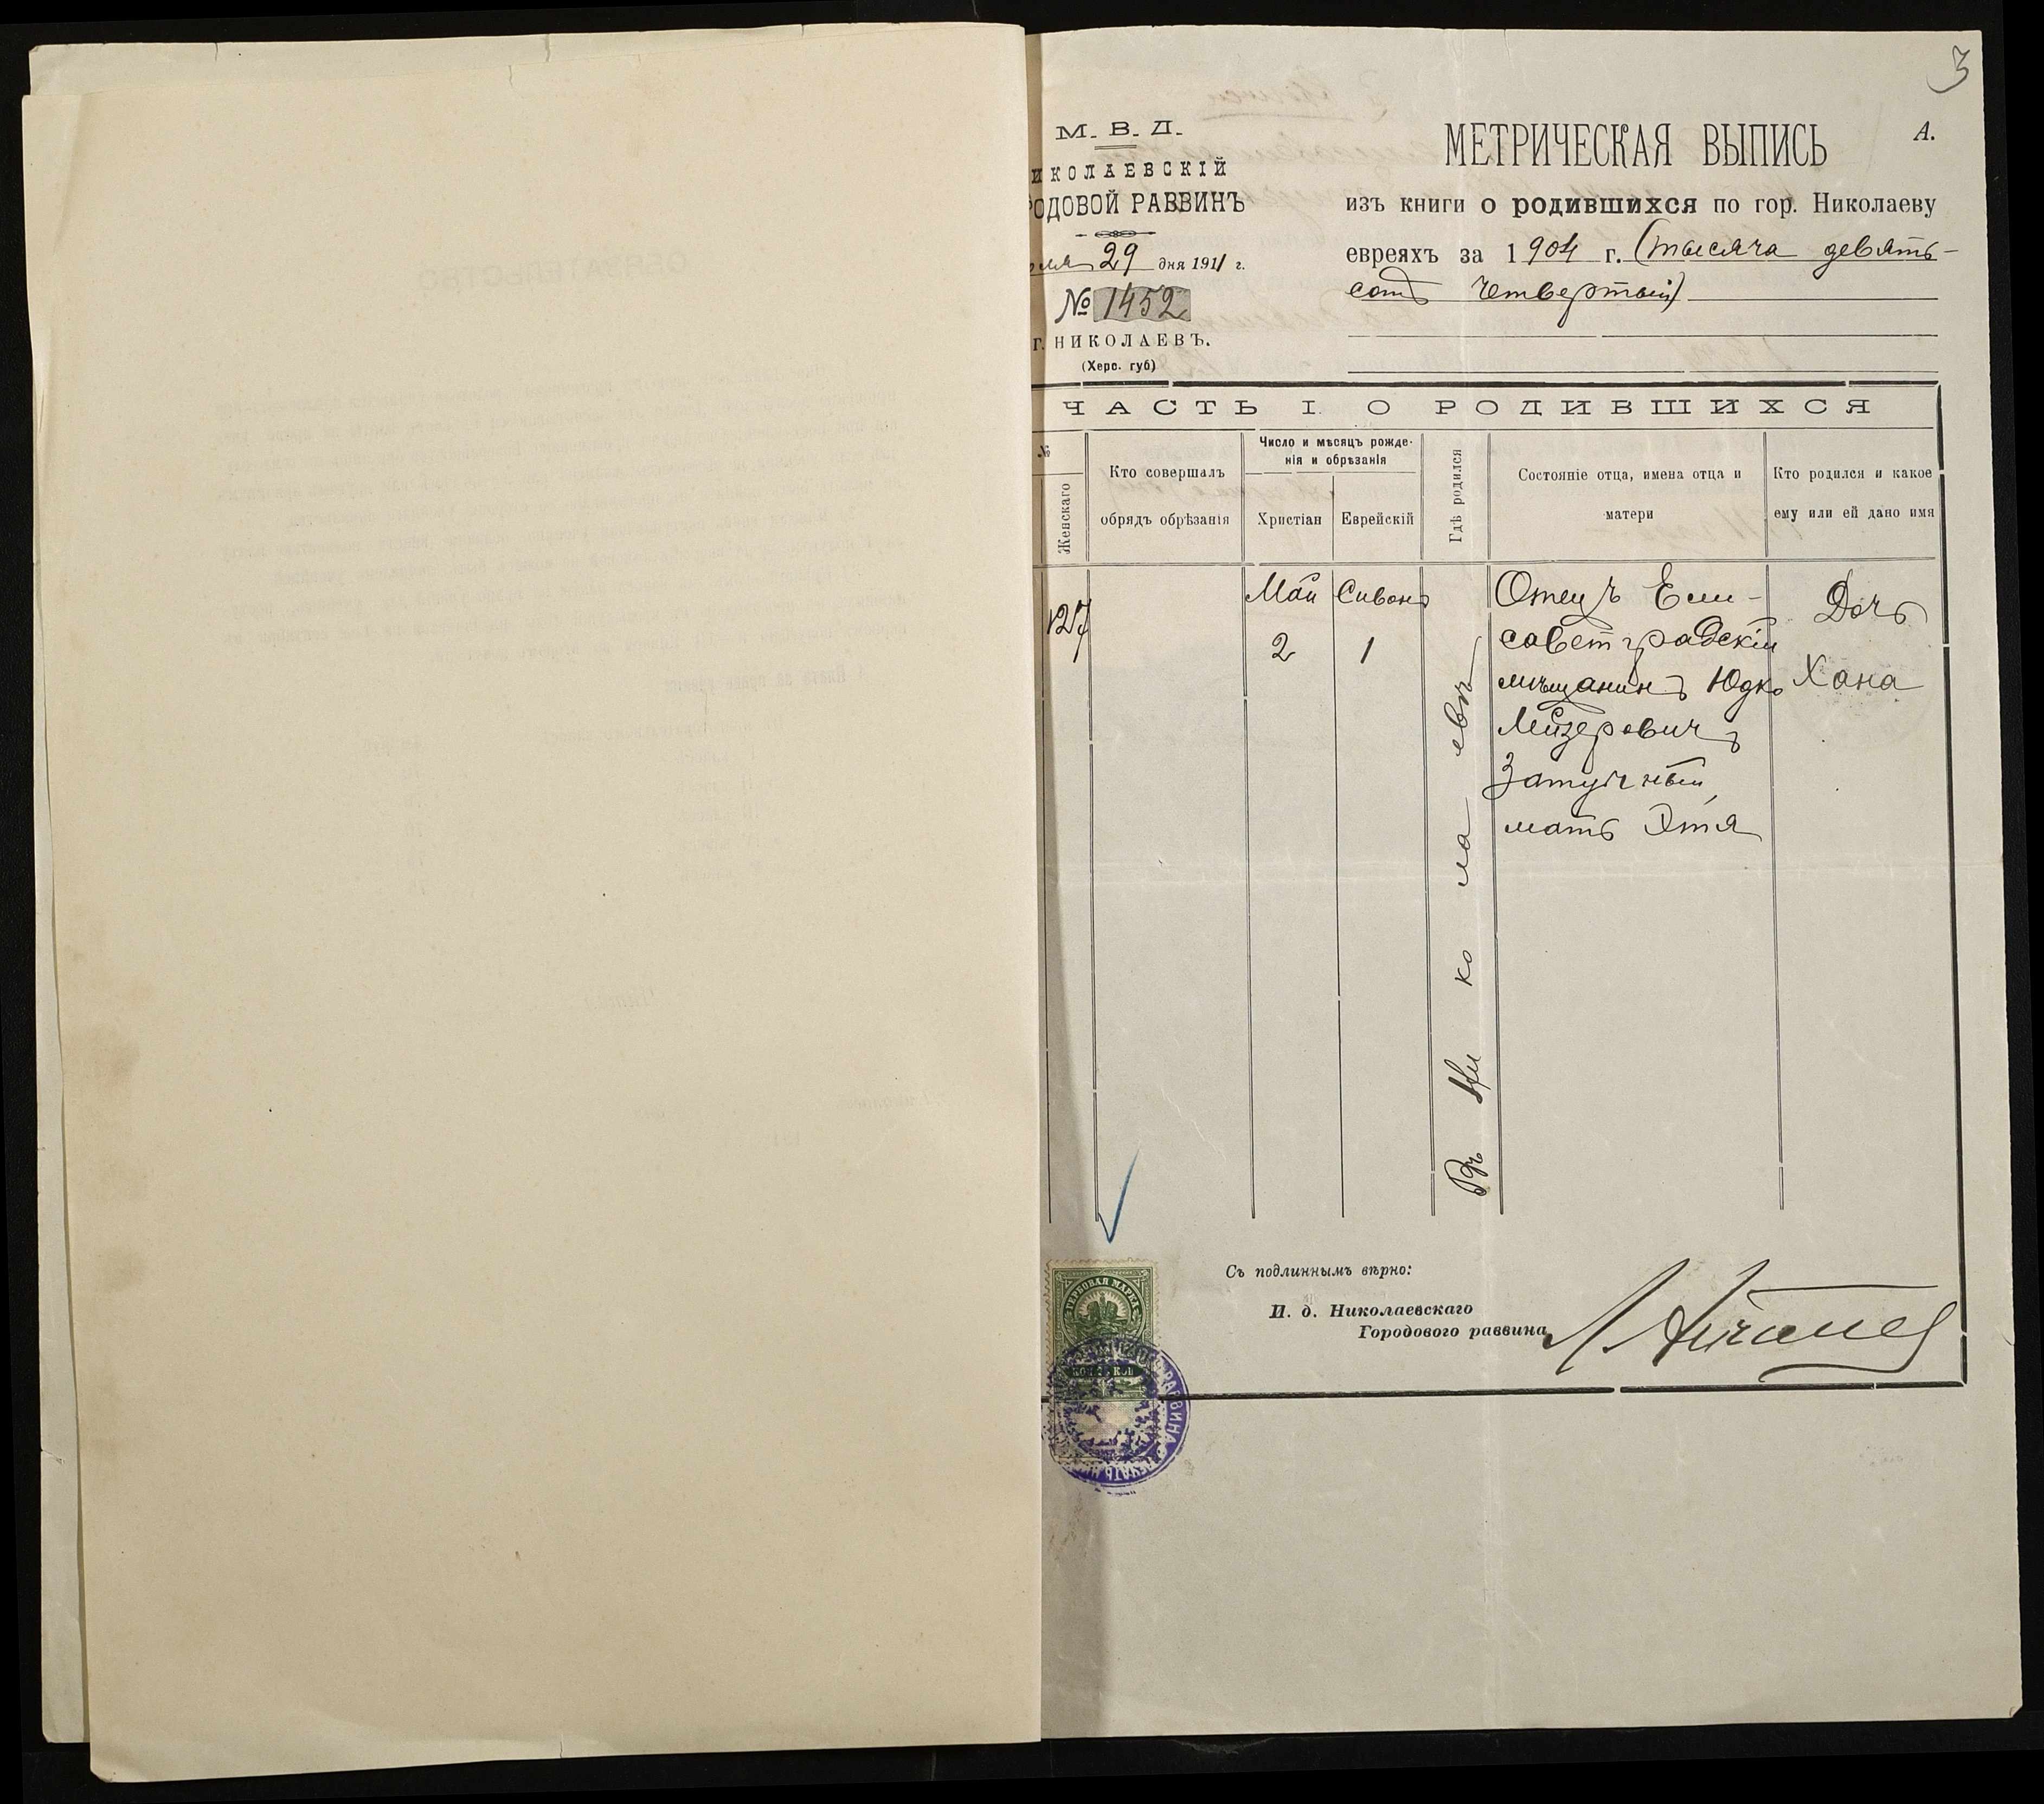 3
М. В. Д.
ИКОЛАЕВСКІЙ
РОДОВОЙ РАВВИНЪ
29 дня 1911 г.
№ 1452
г. НИКОЛАЕВЪ.
(Херс. губ)
МЕТРИЧЕСКАЯ ВЫПИСЬ
А.
изъ книги о родившихся по гор. Николаеву
евреяхъ за 1904 г. (тысяча девять-
сотъ четвертый)
ЧАСТЬ I. О РОДИВШИХСЯ
№
Женскаго
Кто совершалъ
обрядъ обрѣзанія
Число и мѣсяцъ рожде-
нія и обрѣзанія
Христіан
Еврейскій
Гдѣ родился
Состояніе отца, имена отца и
матери
Кто родился и какое
ему или ей дано имя
127
Май
2
Сивонъ
1
Въ Николаевѣ
Отецъ Ели-
саветградскій
мѣщанинъ Юдко
Лейзеровичъ
Затучный,
мать Этя
Дочь
Хана
Съ подлиннымъ вѣрно:
И. д. Николаевскаго
Городового раввина
ГЕРБОВАЯ МАРКА
РАВВИНА
ПЕЧАТЬ